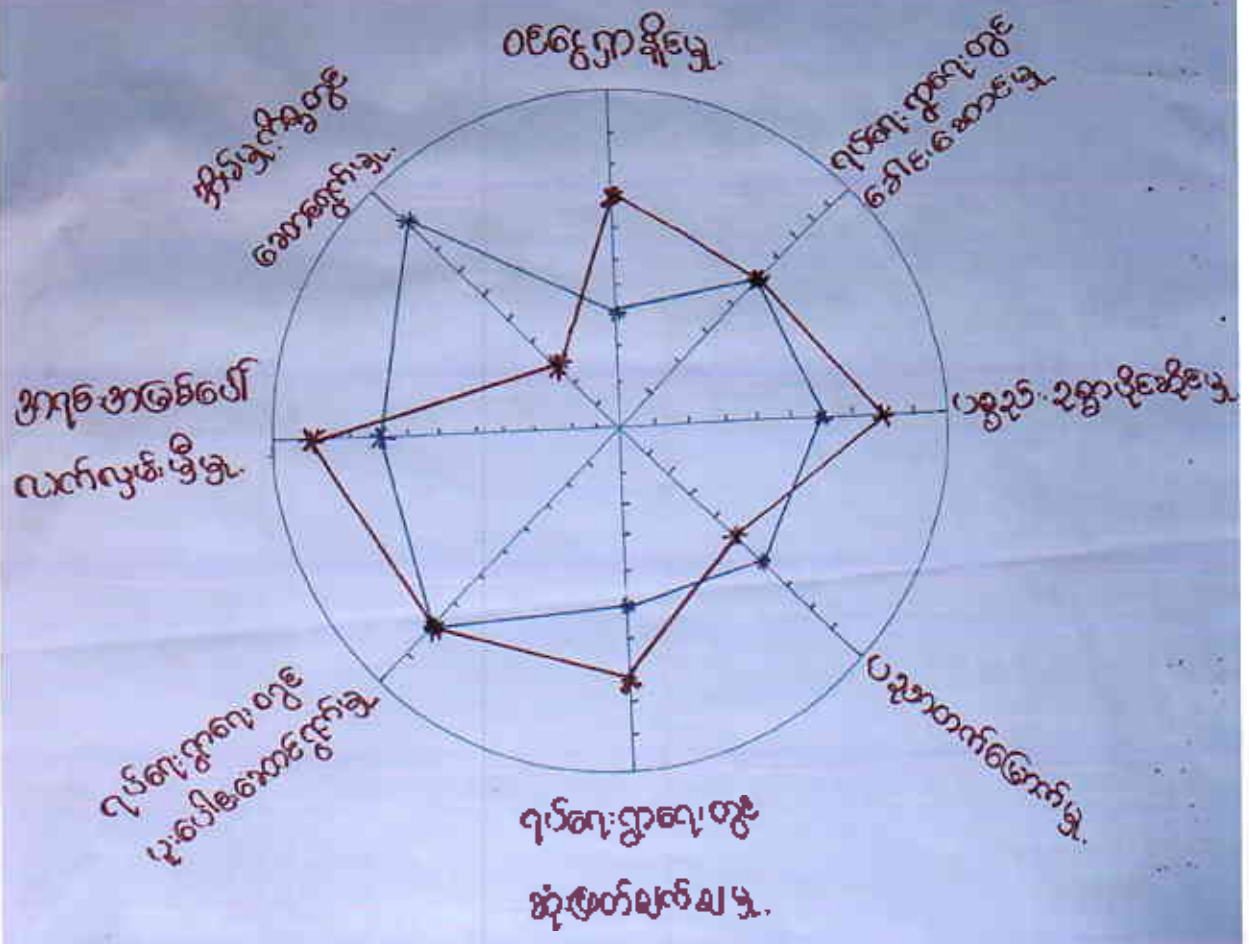 ဝင်ငွေရှာနိုင်မှု
ရပ်ရေးရွာရေးတွင်
ခေါင်းဆောင်မှု
ပစ္စည်းဥစ္စာပိုင်ဆိုင်မှု
ပညာတတ်မြောက်မှု
ရပ်ရေးရွာရေးတွင်
ဆုံးဖြတ်ချက်ချမှု
ရပ်ရေးရွာရေးတွင်
ပူးပေါင်းဆောင်ရွက်မှု
အရင်းအမြစ်ပေါ်
လက်လှမ်းမှီမှု
အိမ်မှုကိစ္စတွင်
ဆောင်ရွက်မှု